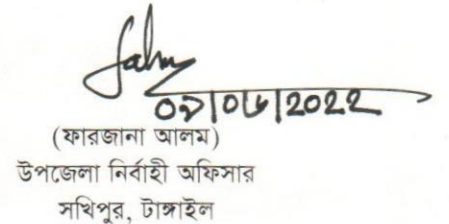 ০৯/০৬/2022
(ফারজানা আলম)
উপজেলা নির্বাহী অফিসার
সখিপুর, টাঙ্গাইল